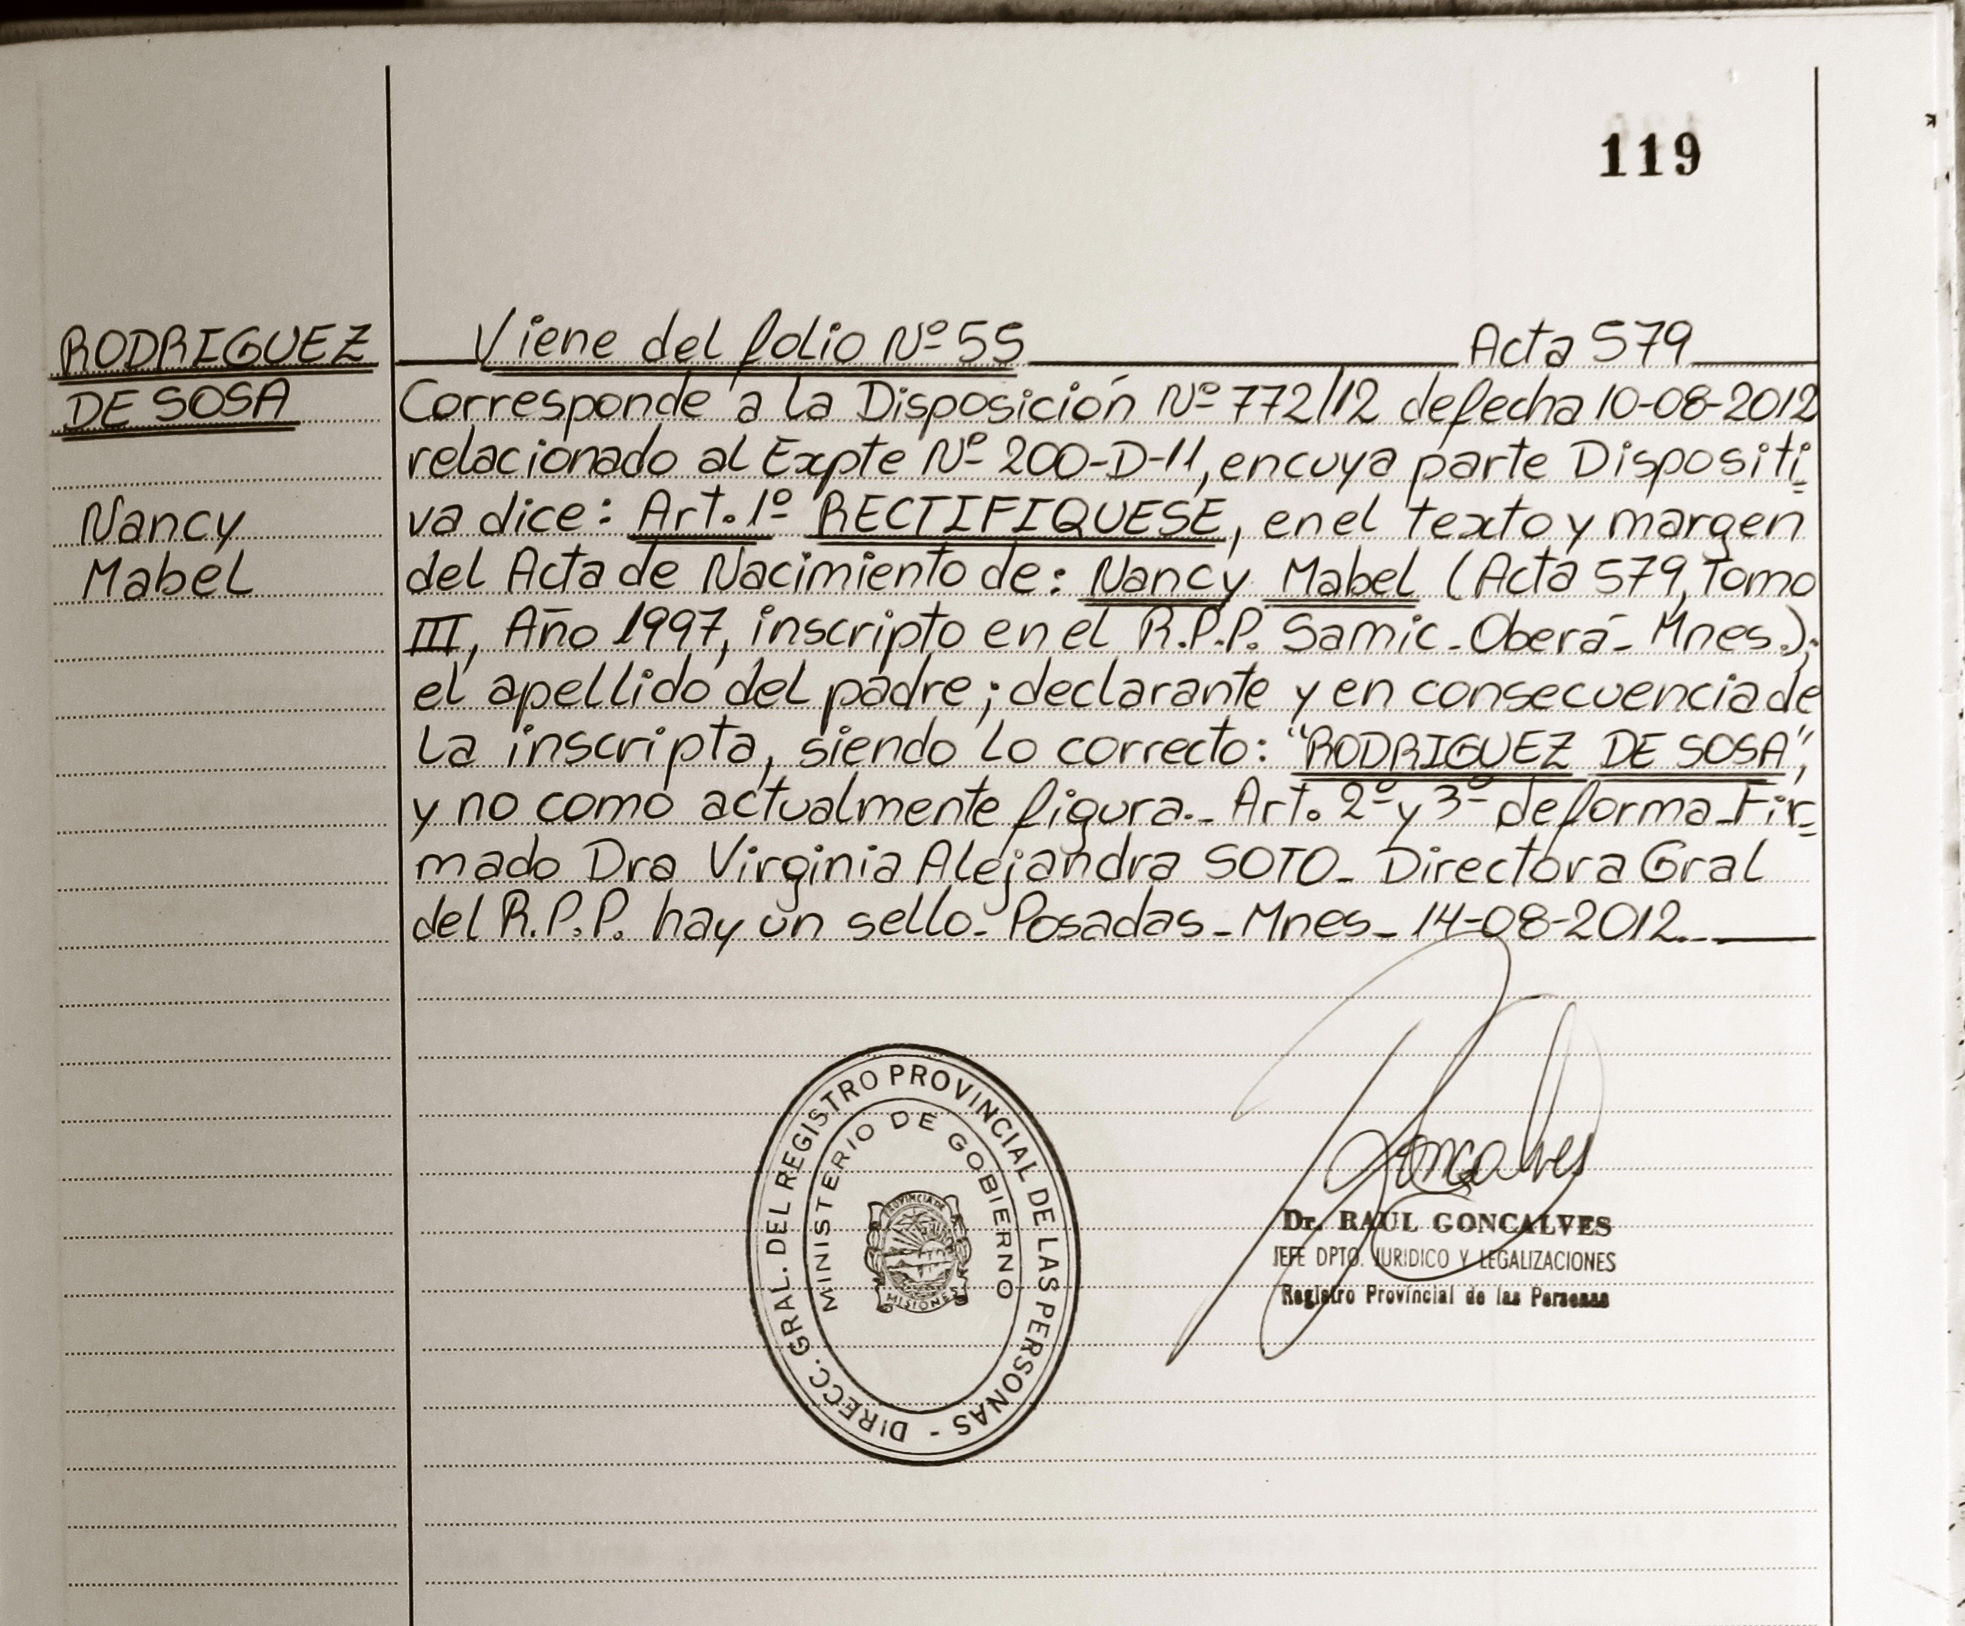 119
RODRIGUEZ
DE SOSA
Nancy
Mabel
Viene del folio Nº 55 Acta 579
Corresponde a la Disposición Nº 772/12 de fecha 10-08-2012
relacionado al Expte Nº 200-D-11, en cuya parte Dispositi=
va dice: Art. 1º RECTIFIQUESE, en el texto y margen
del Acta de Nacimiento de: Nancy Mabel (Acta 579, Tomo
III, Año 1997, inscripto en el R.P.P. Samic - Oberá - Mnes.);
el apellido del padre; declarante y en consecuencia de
la inscripta, siendo lo correcto: "RODRIGUEZ DE SOSA",
y no como actualmente figura.- Art. 2º y 3º de forma - Fir=
mado Dra Virginia Alejandra SOTO - Directora Gral
del R.P.P. hay un sello - Posadas - Mnes - 14-08-2012.-
DIRECC. GRAL. DEL REGISTRO PROVINCIAL DE LAS PERSONAS -
MINISTERIO DE GOBIERNO
PROVINCIA DE
MISIONES
Goncalves
Dr. RAUL GONCALVES
JEFE DPTO. JURIDICO Y LEGALIZACIONES
Registro Provincial de las Personas